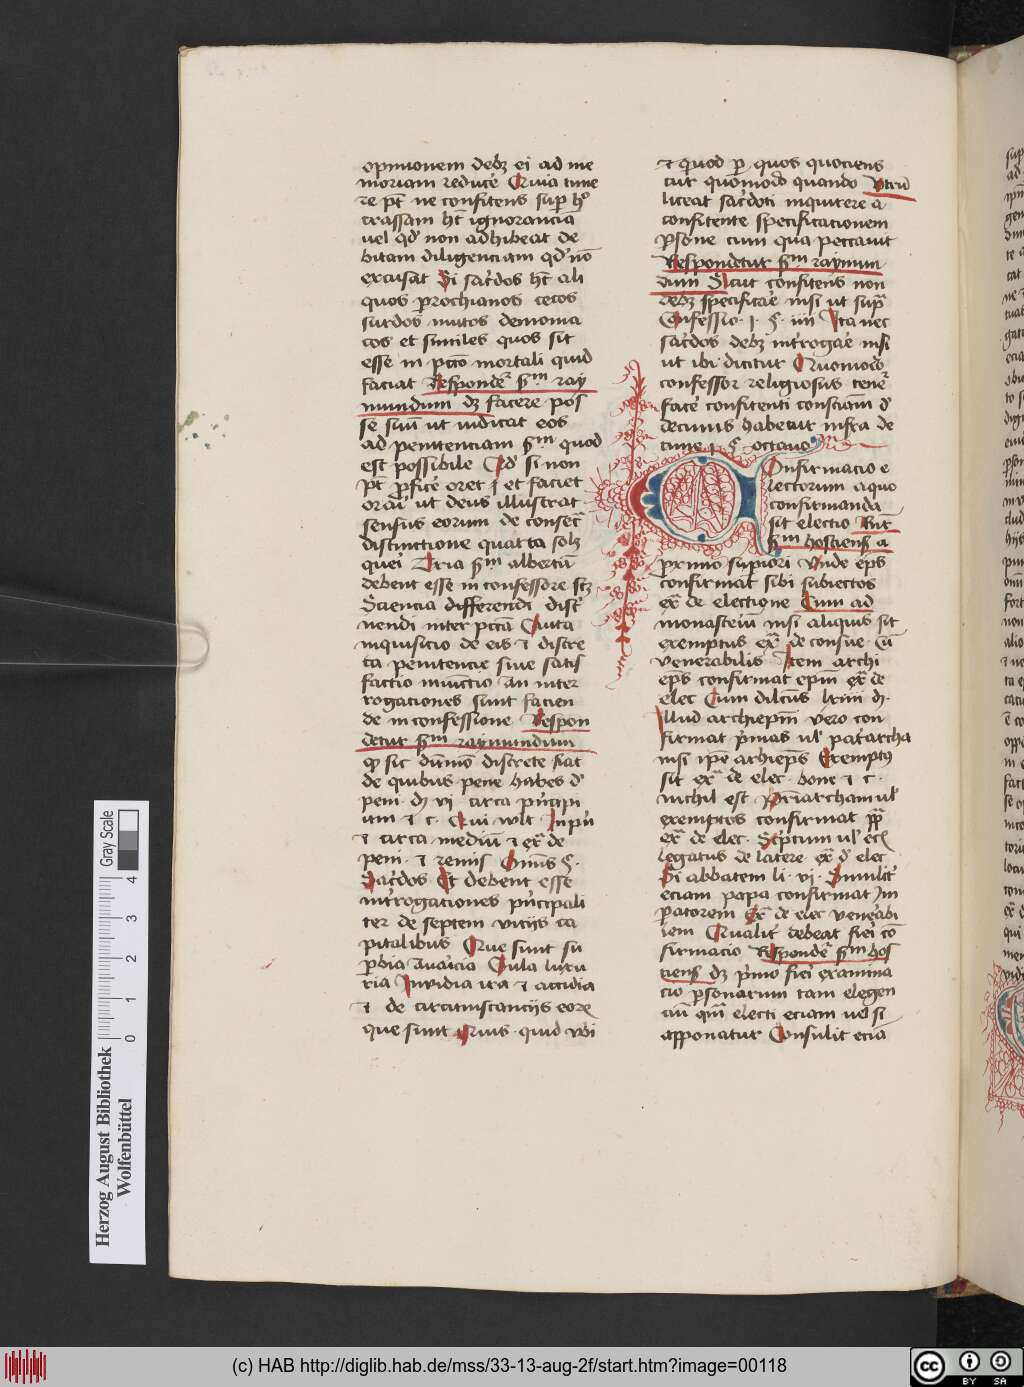 opinionem debꝫ ei ad me
moriam reducẽ Quia time
re pt̃ ne confitens sup̱ hͦ
crassam hꝫ ignoranciã
uel qđ non adhibeat de
bitam diligenciam qđ nõ
excusat Si sac̃dos hꝫ ali
quos p̱rochianos cecos
surdos mutos demonia
cos et similes quos sit
esse in pctõ mortali quid
faciat Respondet᷑ s̃m ray
mundum dꝫ facere pos
se suũ ut iudicat eos
ad penitenciam s̃m quod
est possibile Qđ si non
pt̃ p̱ficẽ oret et faciet
orarĩ ut deus illustrat
sensus eorum de consec̃
distinctione quarta solꝫ
querĩ Circa s̃m albertũ
debent esse in confessore scꝫ
Sciencia differendi disc̃
nendi inter pctã Cauta
inquisicio de eis ⁊ discre
ta penitencie siue satis
factio iniũctio An inter
rogationes sunt facien
de in confessione Respon
detur s̃m raymundum
ꝙ sic dũmõ discrete fiat
de quibus pene habes đ
peni· di vj circa p̃ncipi
um ⁊ c· Qui vult In p̃n
⁊ circa mediũ ⁊ ex̃ de
peni· ⁊ remis̃ Omnis §·
Sac̃dos Et debent esse
int̃rogationes p̃ncipali
ter de septem vitijs ca
pitalibus Que sunt su
p̱bia Auaricia Gula luxu
ria Inuidia ira ⁊ accidia
⁊ de circumstancijs eoꝝ
que sunt Quis· quid vbi
⁊ quod p̱ quos quociens
cur quomodo quando Vtrũ
liceat sac̃doti inquirere a
confitente specificationem
p̱sone cum qua peccauit
Respondetur s̃m raymun
dum Sicut confitens non
debꝫ specificar̃e nisi ut sup̃
Confessio· j· §· iiij Ita nec
sac̃dos debꝫ int̃rogar̃e nisi
ut ibi dicitur Quomodo
confessor religiosus tenet᷑
facẽ confitenti consciam đ
decimis habetur infra de
cime j §· octauo
Confirmacio e
lectorum a quo
confirmanda
sit electio Rñr
s̃m hostiens̃ a
p̱ximo supiori Vnde ep̃s
confirmat sibi subiectos
ex̃ de electione Cum ad
monasteiũ nisi aliquis sit
exemptus ex̃ de consue· cũ
venerabilis Item archi
ep̃s confirmat ep̃m ex̃ de
elec Cum dilcũs lxiiij di·
Illud archiep̃m vero con
firmat p̃mas ul̓ pat̃archa
nisi ip̃e archiep̃s Exemptꝰ
sit ex̃ de elec· bone ⁊ c·
nichil est Pat̃riarcham ul̓
exemptos confirmat p̃p̃
ex̃ de elec· Sc̃iptum ul̓ ec̃
legatus de latere ex̃ đ elec
Si abbatem li· vj· Similit̃
eciam papa confirmat Im
p̱atorem Ex̃ de elec ven̾abi
lem Qualit̃ debeat fierĩ cõ
firmacio Respondet᷑ s̃m hos
tiens̃ dꝫ p̃mo fierĩ examina
cio p̱sonarum tam elegen
ciũ qm̃ electi eciam uel si
apponatur Consulit ecia
Herzog August Bibliothek
Wolfenbüttel
Gray Scale
0 1 2 3 4
(c) HAB http://diglib.hab.de/mss/33-13-aug-2f/start.htm?image=00118
cc BY SA